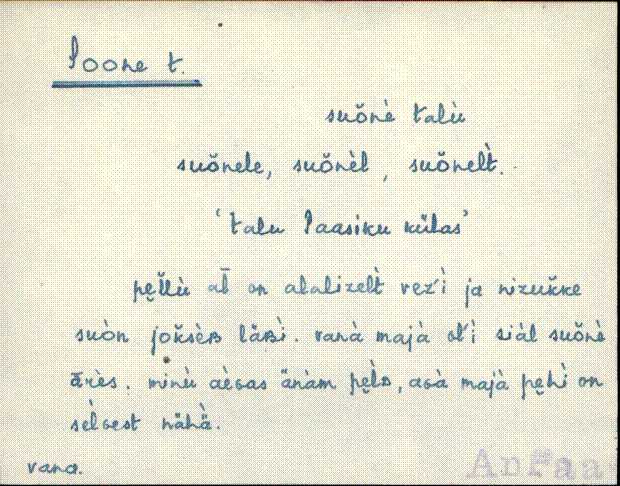 Soone t.
suŏnè talù
suŏnele, suŏnèl, suŏnelt̀.
'talu Saasiku külas'
pe̮ľľù al̄ on alalizelt̀ vez'i ja nizukke
suòn jok̆sèʙ läʙ̆ì. vanà majà ol'ì siàl suŏnè
ā̈rès. minù aèɢas änàm pe̮lò, aɢà majà pe̮hì on
sèlɢest nähä̀.
vana.